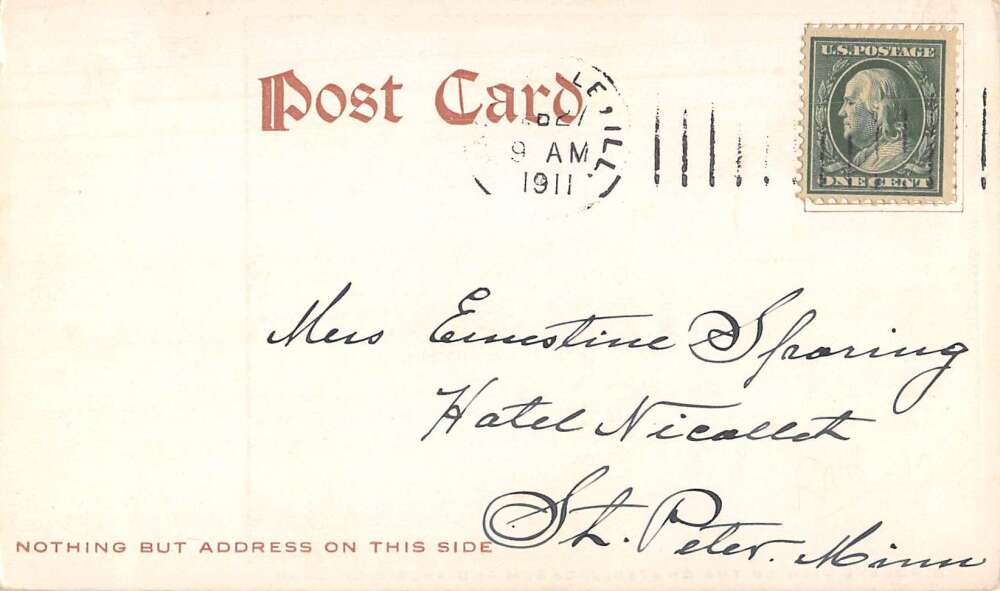 Post Card
LE, ILL.
9 AM
1911
U.S. POSTAGE
ONE CENT
Mrs Ernestine Sparing
Hotel Nicollet
St. Peter. Minn
NOTHING BUT ADDRESS ON THIS SIDE